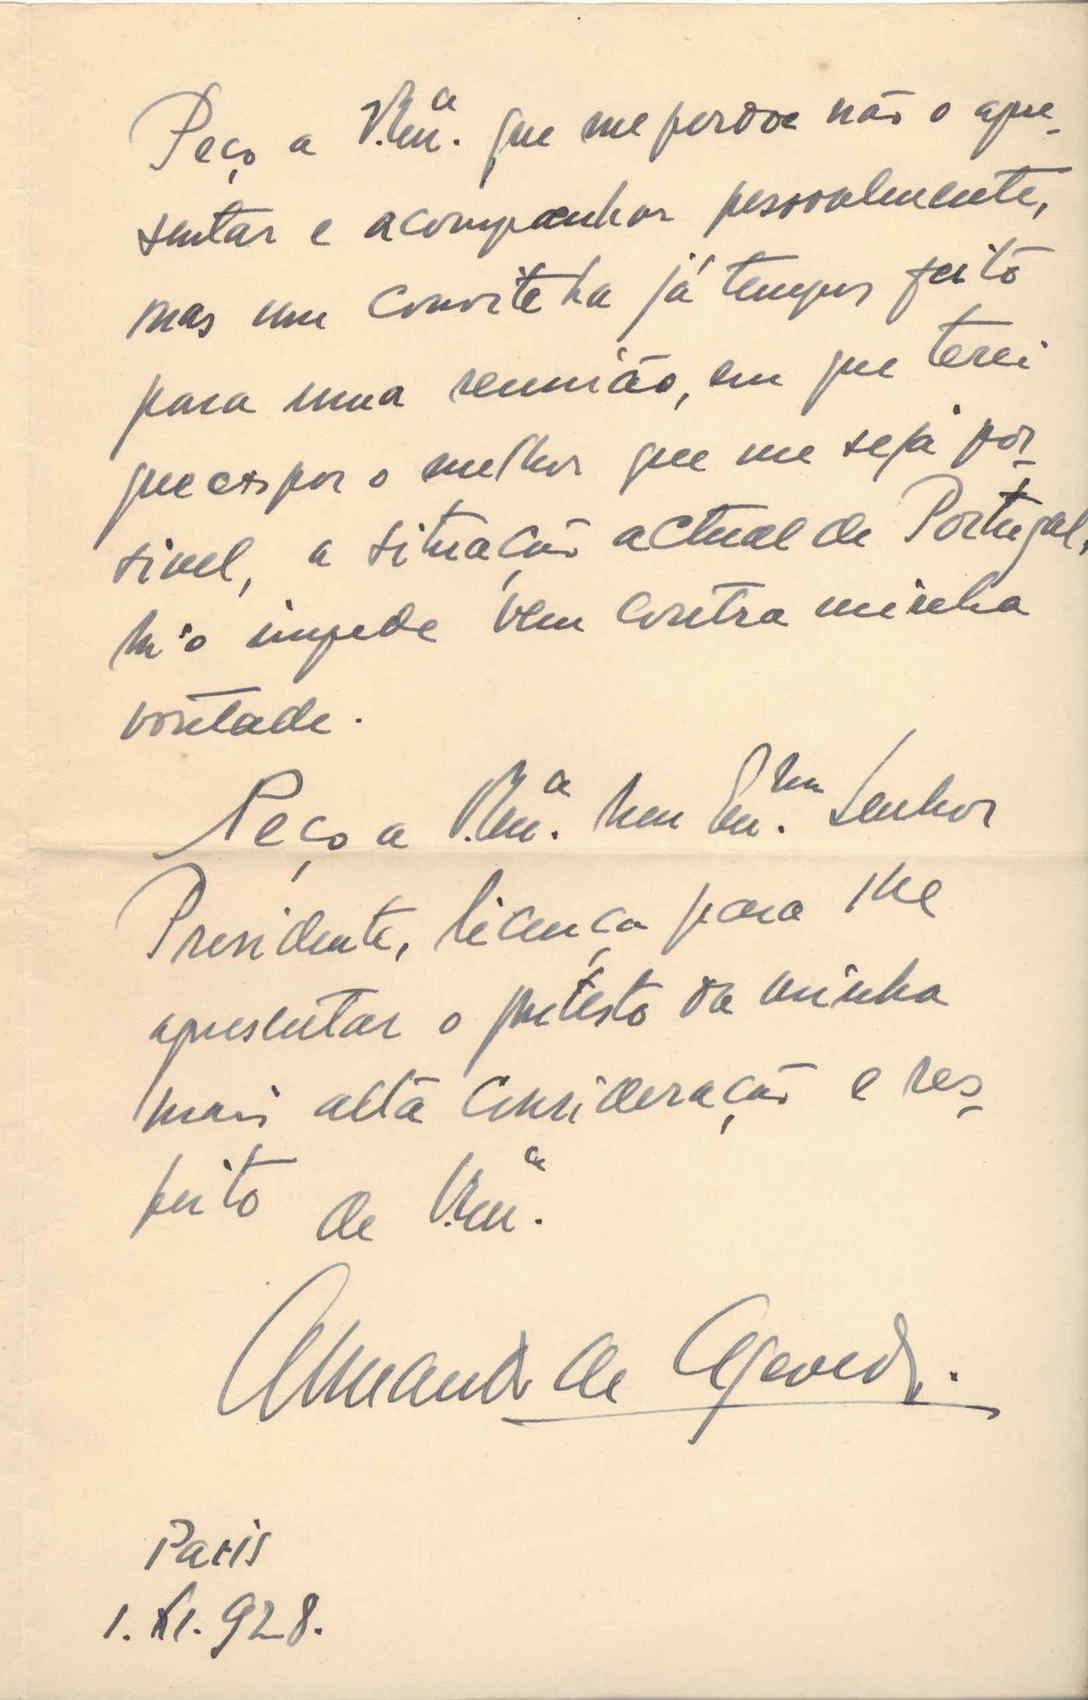 Peço a V. Ex.ª que me perdoe não o apre-
sentar e acompanhar pessoalmente,
mas um convite ha já tempos feito
para uma reunião, em que terei
que expor o melhor que me seja pos-
sivel, a situação actual de Portugal,
m'o impede bem contra minha
vontade.
Peço a V. Ex.ª meu Ex.mo Senhor
Presidente, licença para lhe
apresentar o protesto da minha
mais alta consideração e res-
peito de V. Ex.ª
Armando de Azevedo.
Paris
1. XI. 928.